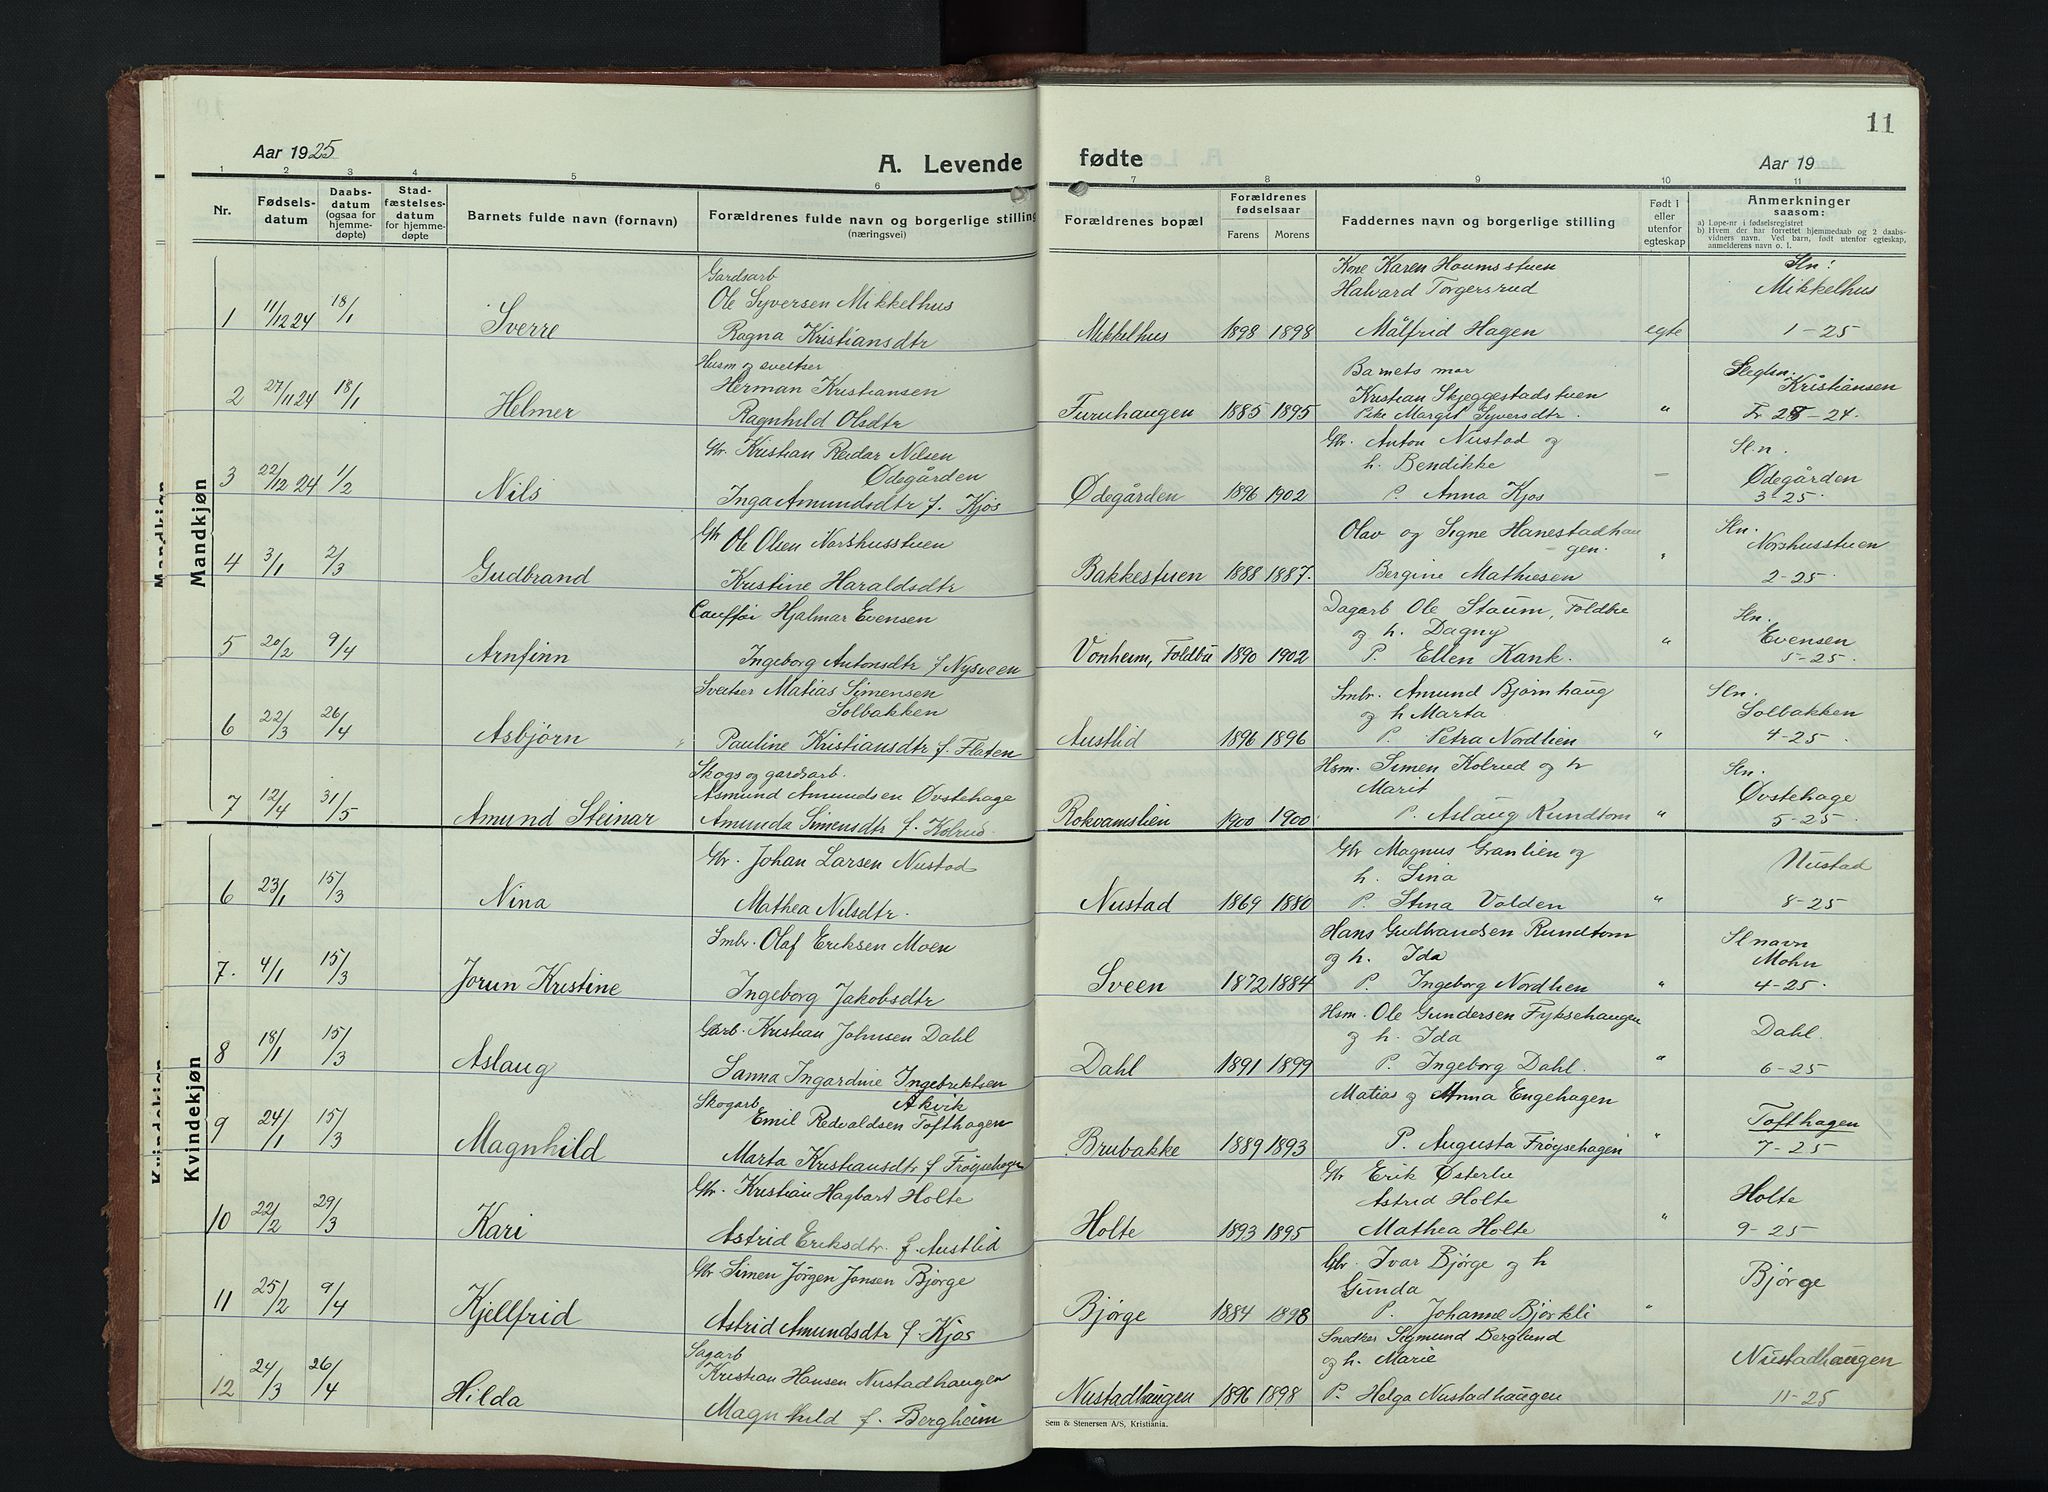 11
Aar 1925
A. Levende fødte
Aar 19
1 2 3 4 5 6 7 8 9 10 11
Nr.
Fødsels-
datum
Daabs-
datum
(ogsaa for
hjemme-
døpte)
Stad-
fæstelses-
datum
for hjemme-
døpte
Barnets fulde navn (fornavn)
Forældrenes fulde navn og borgerlige stilling
(næringsvei)
Forældrenes bopæl
Forældrenes
fødselsaar
Farens Morens
Faddernes navn og borgerlige stilling
Født i
eller
utenfor
egteskap
Anmerkninger
saasom:
a) Løpe-nr i fødselsregistret
b) Hvem der har forrettet hjemmedaab og 2 daabs-
vidners navn. Ved barn, født utenfor egteskap,
anmelderens navn o. l.
Mandkjøn
Gardsarb
Ole Syversen Mikkelhus
1 11/12 24 18/1 Sverre
Ragna Kristiansdtr
Mikkelhus 1898 1898
Kone Karen Houmsstuen
Halvard Torgersrud
Målfrid Hagen
egte
Sln:
Mikkelhus
1-25
Husm og sveitser
Herman Kristiansen
2 27/11 24 18/1 Helmer
Ragnhild Olsdtr
Furuhaugen 1885 1895
Barnets mor
Kristian Skjeggestadstuen
Pike Margit Syversdtr.
"
Slegtsn:
Kristiansen
Fr 28-24.
Gbr. Kristian Reidar Nilsen
Ødegården
3 22/12 24 1/2 Nils
Inga Amundsdtr f. Kjos
Ødegården 1896 1902
Gbr. Anton Nustad og
h. Bendikke
P. Anna Kjos
—
Sl.n.
Ødegården
3-25.
Gbr Ole Olsen Norshusstuen
4 3/1 2/3 Gudbrand
Kristine Haraldsdtr
Bakkestuen 1888 1887.
Olav og Signe Hanestadhau
gen.
Bergine Mathiesen
"
Sln.
Norshusstuen
2-25
Cauffør Hjalmar Evensen
5 20/2 9/4 Arnfinn
Ingeborg Antonsdtr f Nysveen
Vonheim, Foldbu 1890 1902
Dagarb Ole Staum, Foldbu
og h. Dagny
P. Ellen Kank.
"
Sln.
Evensen
5-25.
Sveitser Matias Simensen
Solbakken
6 22/3 26/4 Asbjørn
Pauline Kristiansdtr f Flaten
Austlid 1896 1896
Smbr. Amund Bjørnhaug
og h Marta
P. Petra Nordlien
"
Sln.
Solbakken
4-25.
Skogs og gardsarb.
Asmund Amundsen Øvstehage
7 12/4 31/5 Amund Steinar
Amunda Simensdtr f. Kolrud
Rokvamslien 1900 1900
Hsm. Simen Kolrud og h
Marit
P. Aslaug Rundtom
"
Sln.
Øvstehage
5-25.
Kvindekjøn
Gbr. Johan Larsen Nustad
6 23/1 15/3 Nina
Mathea Nilsdtr.
Nustad 1869 1880
Gbr Magnus Granlien og
h. Lina
P. Stina Volden
"
Nustad
8-25
Smbr. Olaf Eriksen Moen
7. 4/1 15/3 Jorun Kristine
Ingeborg Jakobsdtr
Sveen 1872 1884
Hans Gudbrandsen Rundtom
og h. Ida
P. Ingeborg Nordlien
"
Sl navn
Mohn
4-25.
Garb. Kristian Johnsen Dahl
8 18/1 15/3 Aslaug
Sanna Ingardine Ingebriktsen
Akvik
Dahl 1891 1899
Hsm. Ole Gundersen Fyksehaugen
og h. Ida
P. Ingeborg Dahl.
"
Dahl.
6-25
Skogarb
Emil Redvaldsen Tofthagen
9 24/1 15/3 Magnhild
Marta Kristiansdtr f Frøysehagen
Brubakke 1889 1893
Matias og Anna Engehagen
P. Augusta Frøysehagen
"
Tofthagen
7-25
Gbr. Kristian Hagbart Holte
10 22/2 29/3 Kari
Astrid Eriksdtr. f. Austlid
Holte 1893 1895
Gbr Erik Østerlie
Astrid Holte
Mathea Holte
"
Holte
9-25
Gbr Simen Jørgen Jonsen Bjørge
11 25/2 9/4 Kjellfrid
Astrid Amundsdtr f. Kjos
Bjørge 1884 1898
Gbr. Ivar Bjørge og h
Gunda
P. Johanne Bjørkli
"
Bjørge
Sagarb
Kristian Hansen Nustadhaugen
12 24/3 26/4 Hilda
Magnhild f. Bergheim
Nustadhaugen 1896 1898
Snedker Sigmund Berglund
og h. Marie
P. Helga Nustadhaugen
Nustadhaugen
11-25
Sem & Stenersen A/S, Kristiania.